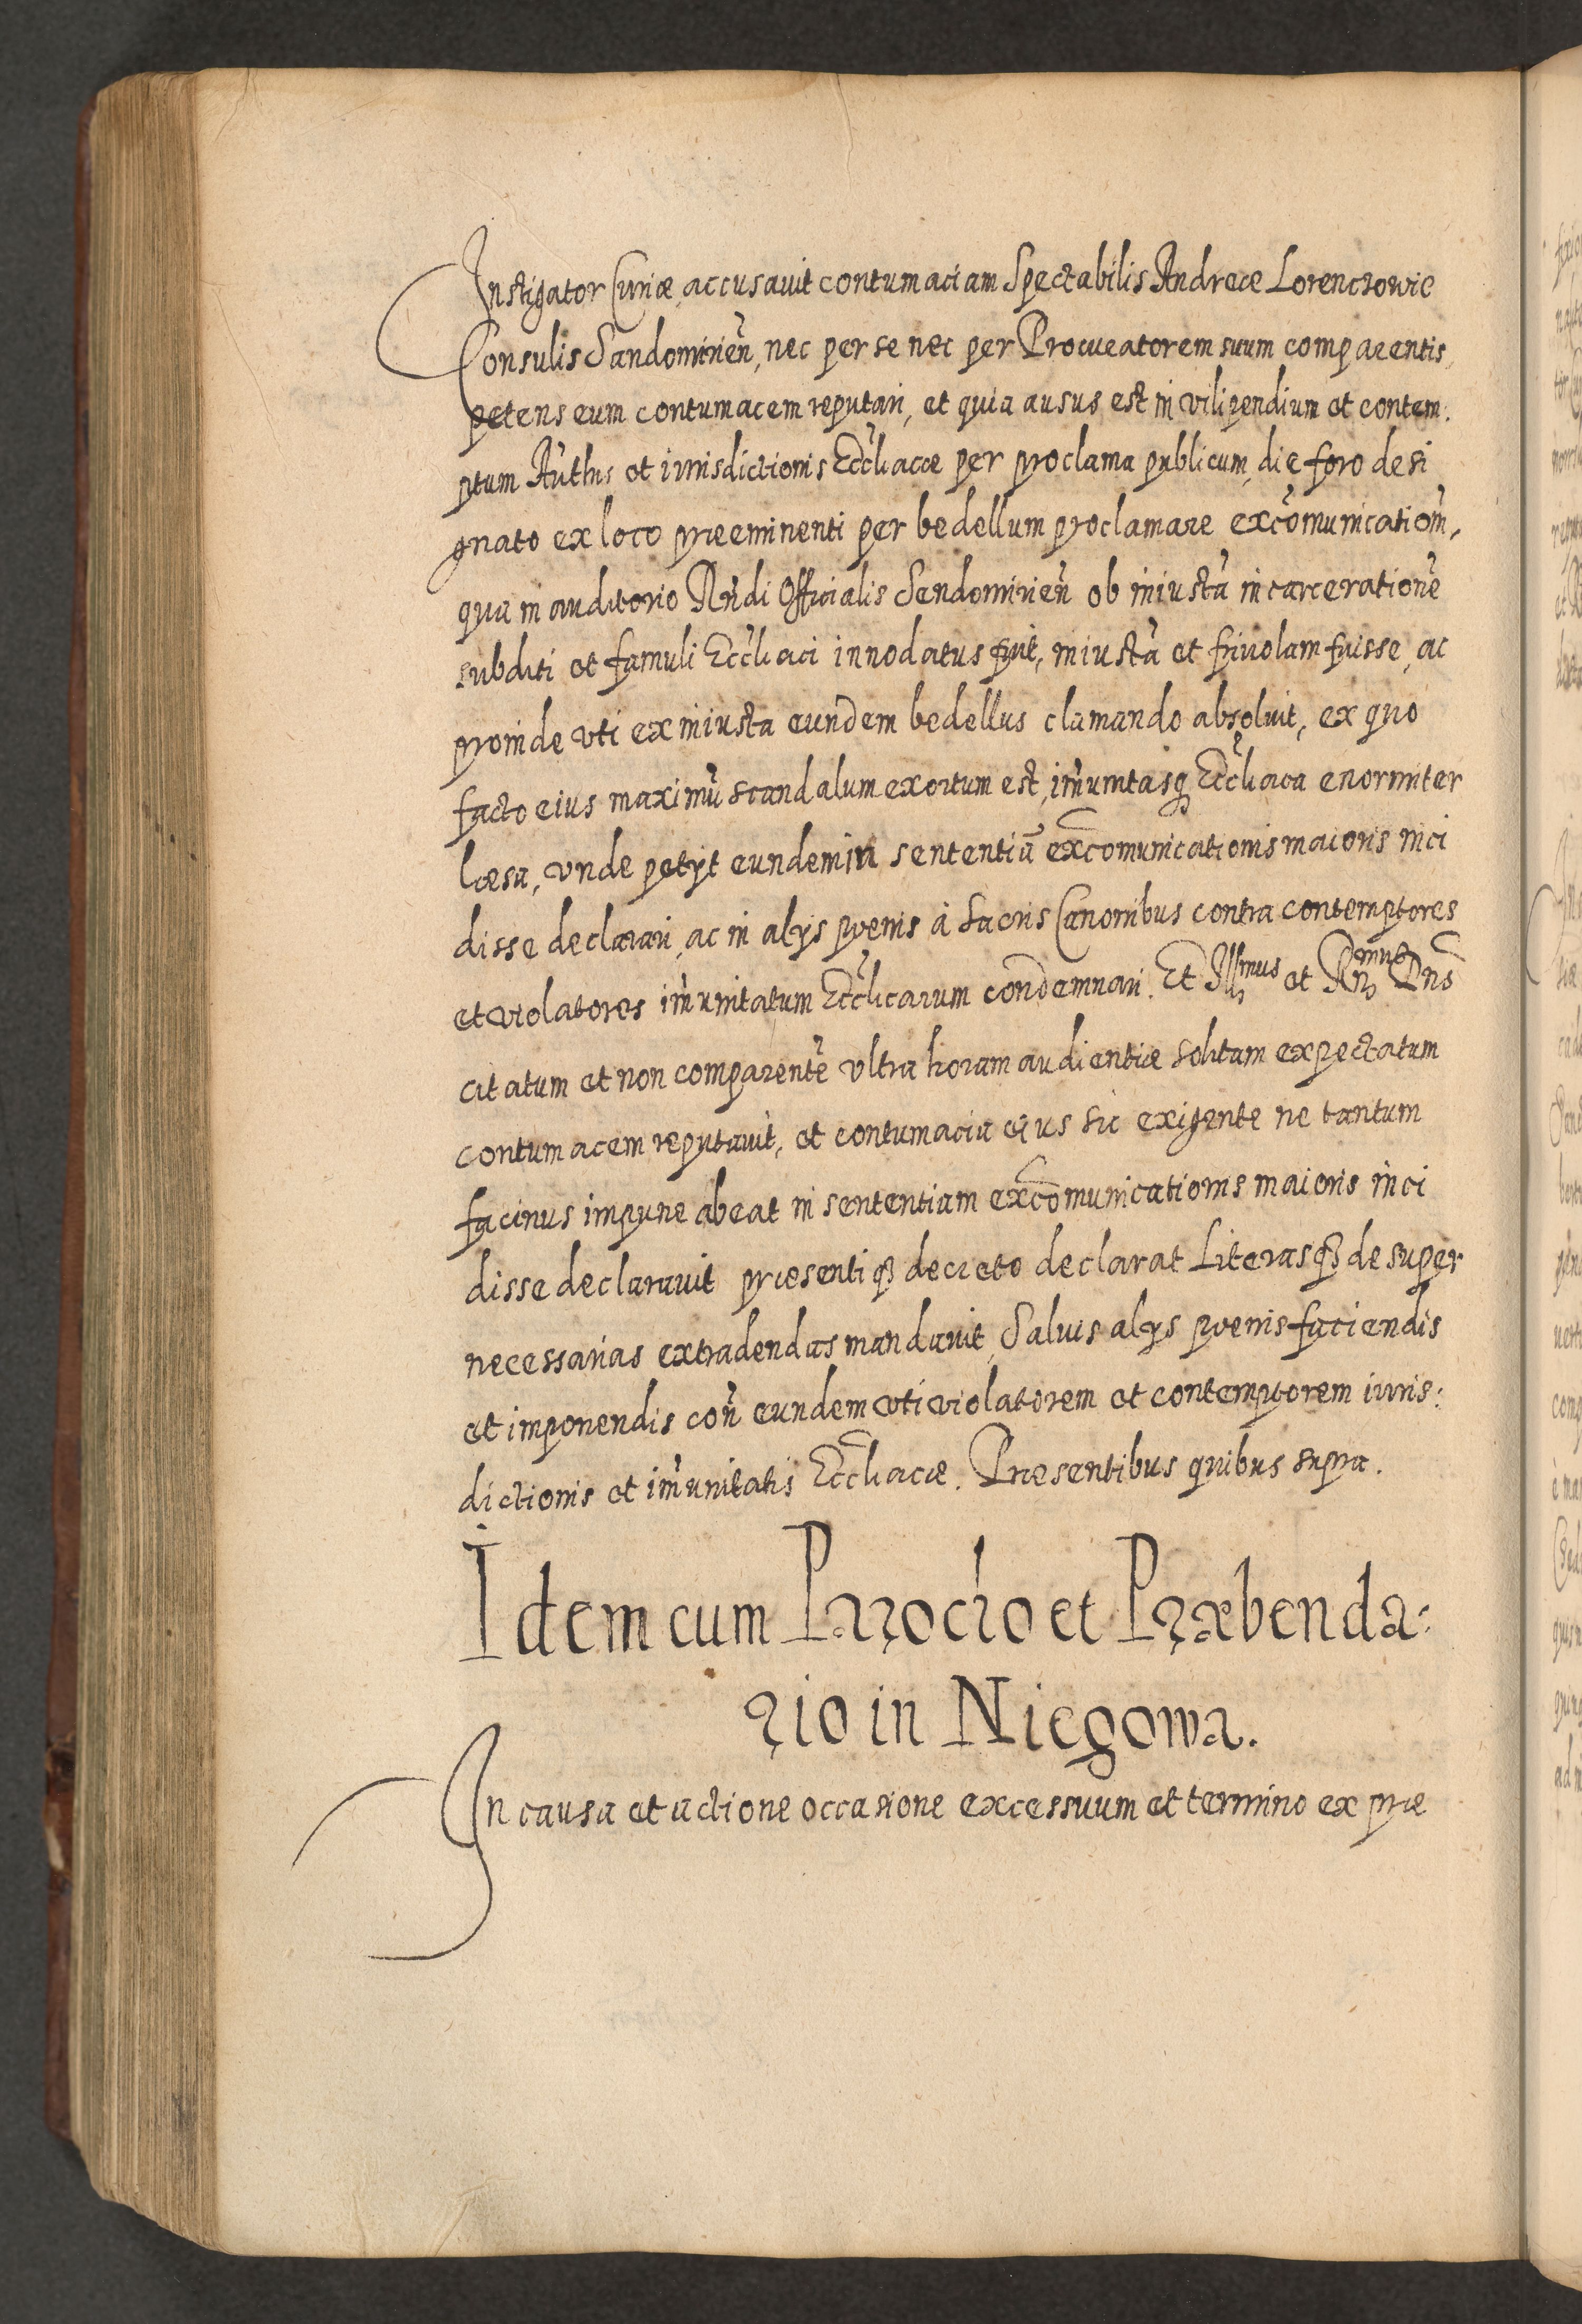 Instigator Curiæ, accusavit contumaciam Spectabilis Andreæ Lorenczowic
Consulis Sandomirien̄, nec per se nec per Procuratorem suum comparentis,
petens eum contumacem reputari, et quia ausus est in vilipendium et contem:
ptum Auth̄is et iurisdictionis Eccl̄iacæ per proclama publicum, die foro desi
gnato ex loco præeminenti per bedellum proclamare excōmunicatiōm,
qua in auditorio Rn̄di Officialis Sendomirien̄ ob iniustā incarcerationē
subditi et famuli Eccl̄iaci innodatus fuit, iniustā et friuolam fuisse, ac
proinde vti ex iniusta eundem bedellus clamando absoluit, ex quo
facto eius maximū scandalum exortum est, im̄unitasq3 Eccl̄iaca enormiter
læsa, vnde petijt eundem in sententiā excōmunicationis maioris inci
disse declarari, ac in alijs pœnis à Sacris Canonibus contra contemptores
et violatores im̄unitatum Eccl̄icarum condemnari. Et Ill̄mus et Rn̄mus Dn̄s
citatum et non comparentē vltra horam audientiæ solitam expectatum
contumacem reputauit, et contumacia eius sic exigente ne tantum
facinus impune abeat in sententiam excōmunicationis maioris inci
disse declarauit præsentiq3 decreto declarat Literasq3 desuper
necessarias extradendas mandauit, Saluis alijs pœnis faciendis
et imponendis con̄ eundem vti violatorem et contemptorem iuris:
dictionis et im̄unitatis Eccl̄iacæ. Præsentibus quibus supra.
Idem cum Parocho et Præbenda:
rio in Niegowa.
In causa et actione occasione excessuum et termino ex præ